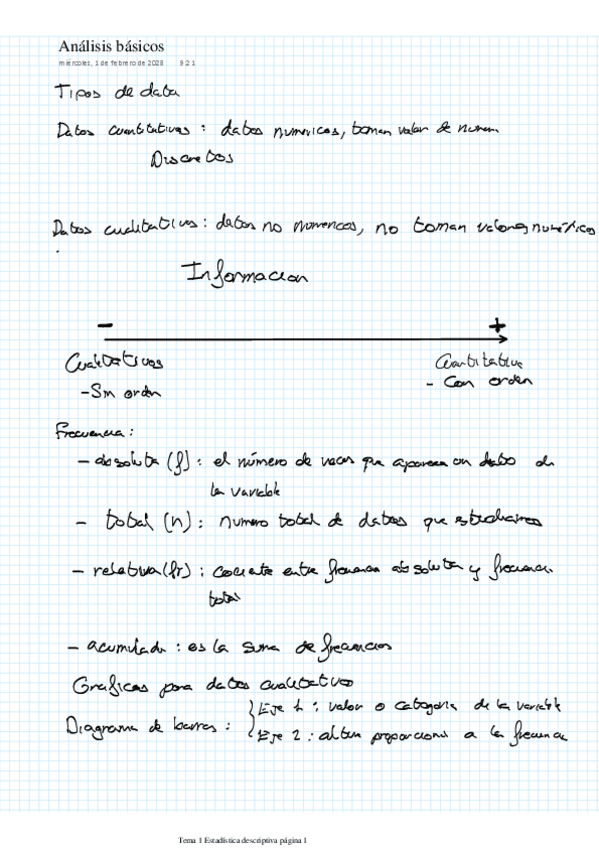 Análisis básicos
miércoles, 1 de febrero de 2023 9:21
Tipos de data
Datos cuantitativos : datos numericos, toman valor de numero
Discretos
Datos cualitativos : datos no numericos, no toman valores numéricos
.
Informacion
- +
Cualitativos Cuantitativo
- Sin orden - Con orden
Frecuencia :
- absoluta (f) : el número de veces que aparece un dato de
la variable
- total (n) : numero total de datos que estudiamos
- relativa (fr) : cociente entre frecuencia absoluta y frecuencia
total
- acumulada : es la suma de frecuencias
Graficos para datos cualitativo
Eje 1 : valor o categoria de la variable
Diagrama de barras :
Eje 2 : altura proporcional a la frecuencia
Tema 1 Estadística descriptiva página 1